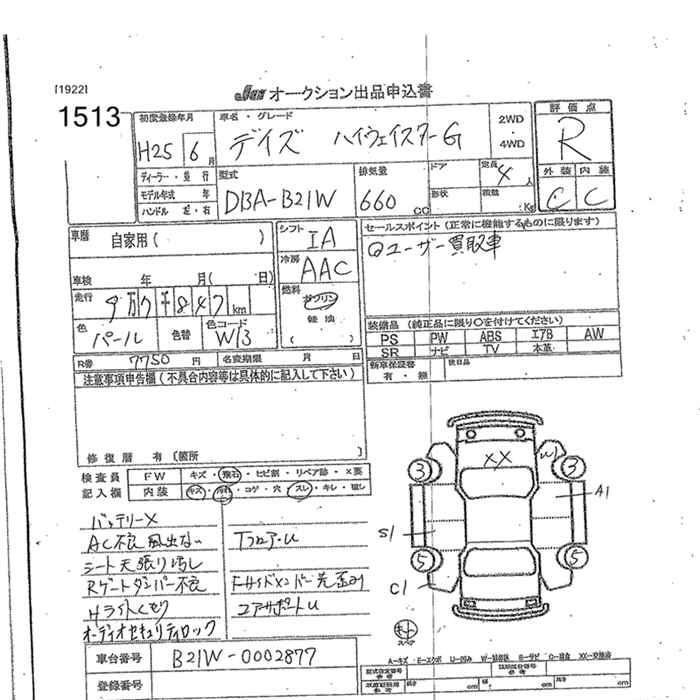 [1922]
Jaa オークション出品申込書
1513
初度登録年月
H25 6月
車名・グレード
デイズ ハイウェイスターG
2WD
・
4WD
評価点
R
ディーラー・並行
モデル年式 年
ハンドル 左・右
型式
DBA-B21W
排気量
660 CC
ドア
形状
定員
4人
積載
Kg
外装 内装
C C
車歴
自家用 ( )
シフト
IA
セールスポイント (正常に機能するものに限ります)
①ユーザー買取車
車検 年 月( 日)
冷房
AAC
走行
9万7千847km
燃料
ガソリン
軽油
( )
色
パール
色替
色コード
W13
装備品 (純正品に限り○を付けてください)
PS PW ABS エアB AW
SR ナビ TV 本革
R番 7750 円
名変期限 月 日
新車保証書
有・無
後日品
注意事項申告欄 (不具合内容等は具体的に記入して下さい)
修復歴 有 (箇所 )
検査員
記入欄
FW キズ・飛石・ヒビ割・リペア跡・X要
内装 キズ・汚れ・コゲ・穴・スレ・キレ・破し
バッテリーX
AC不良 風出ない
シート天張り汚し
Rゲートダンパー不良
Hライトくもり
オーディオセキュリティロック
TフロアーU
Fサイドメンバー先歪み
コアサポートU
XX
W1
3 3
A1
S1
5 5
C1
スペア
車台番号
B21W-0002877
登録番号
A-キズ E-エクボ U-凹み W-補修跡 S-サビ C-腐食 XX-交換済
型式指定番号
参考
類別区分番号
参考
長さ cm 幅 cm 高さ cm